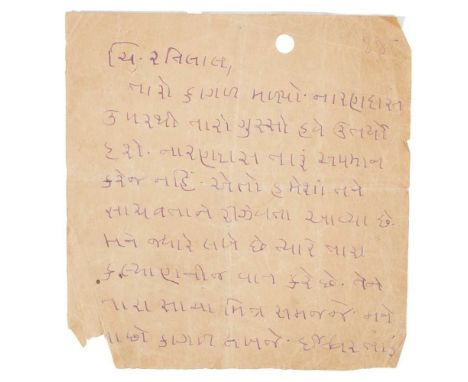 ચિ. રતિલાલ,
તારો કાગળ મળ્યો. નારણદાસ
ઉપરથી તારો ગુસ્સો હવે ઉતર્યો
હશે. નારણદાસ તારૂં અપમાન
કરેજ નહિં. એતો હમેશાં તને
સાચવતાને રીઝવતા આવ્યા છે.
મને જ્યારે લખે છે ત્યારે તારા
કલ્યાણનીજ વાત કરે છે. તેને
તારા સાચા મિત્ર સમજજે. મને
પાછો કાગળ લખજે. ઈશ્વર તારૂં